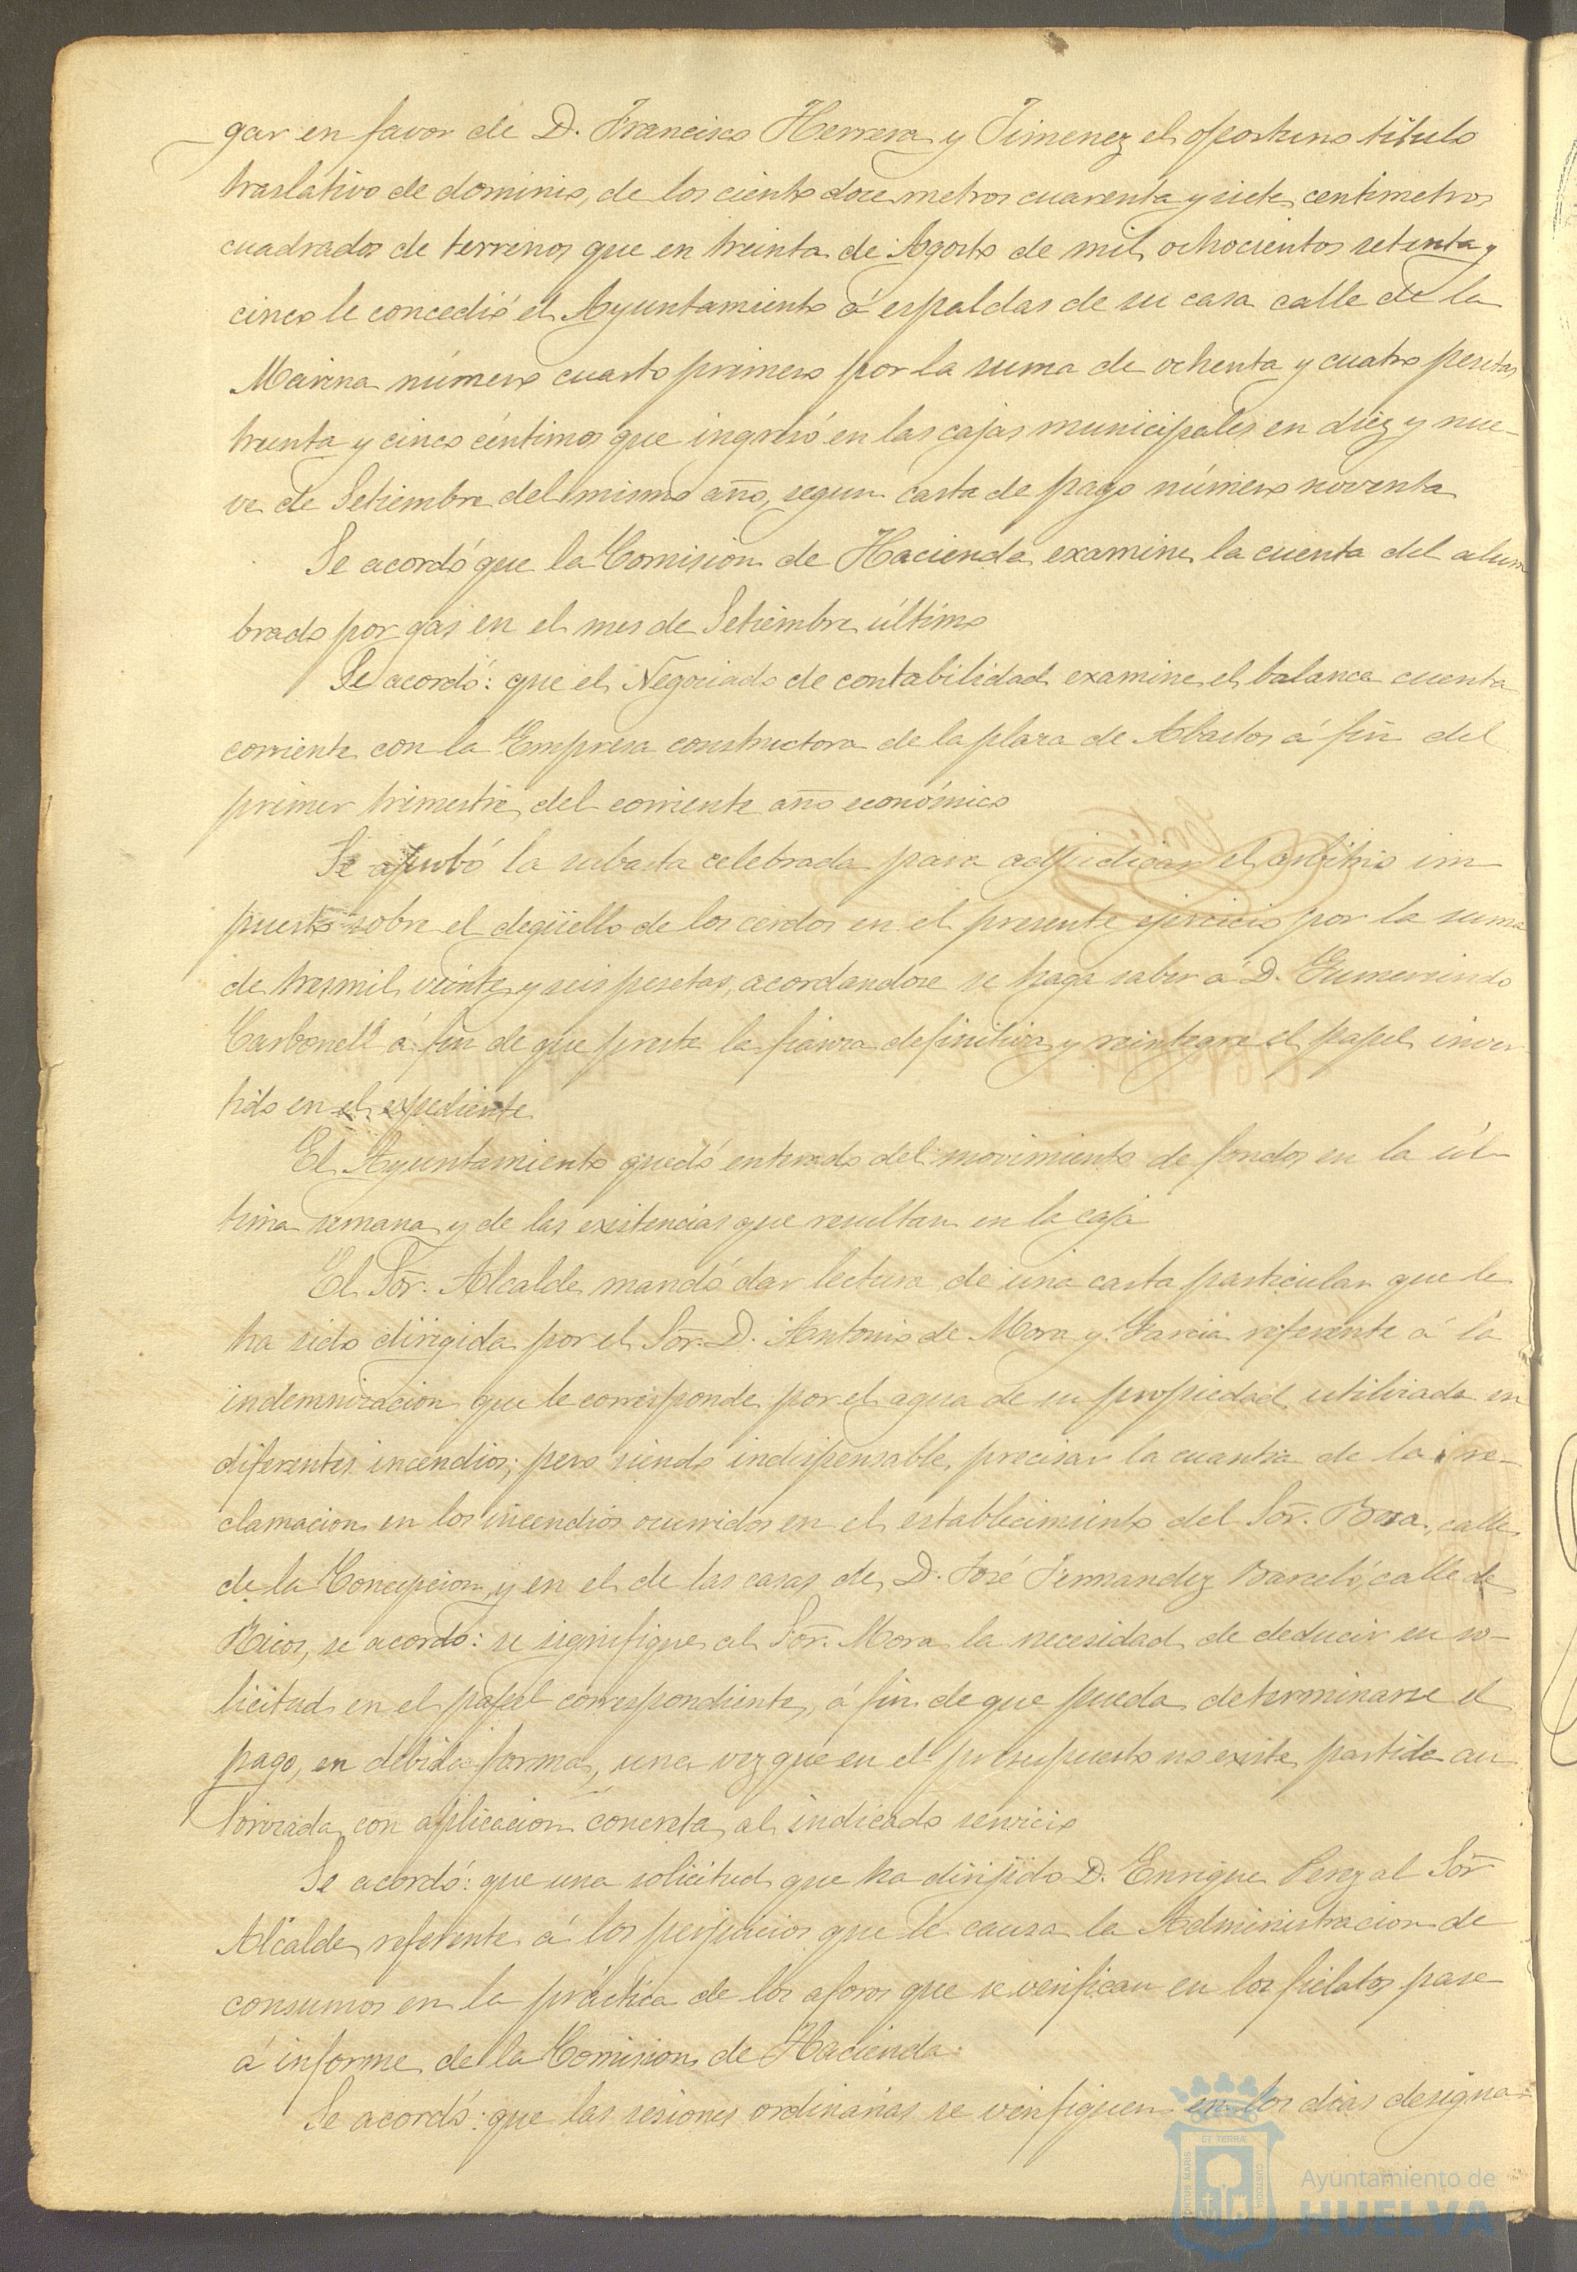 gar en favor de D. Francisco Herrera y Jimenez el oportuno titulo
traslativo de dominio, de los ciento doce metros cuarenta y siete centimetros
cuadrados de terrenos que en treinta de Agosto de mil ochocientos setenta y
cinco le concedió el Ayuntamiento á espaldas de su casa calle de la
Marina número cuarto primero por la suma de ochenta y cuatro pesetas
treinta y cinco céntimos que ingresó en las cajas municipales en diez y nue-
ve de Setiembre del mismo año, segun carta de pago número noventa
Se acordó que la Comision de Hacienda examine la cuenta del alum
brado por gas en el mes de Setiembre último
Se acordó: que el Negociado de contabilidad examine el balance cuenta
corriente con la Empresa constructora de la plaza de Abastos á fin del
primer trimestre del corriente año económico
Se aprobó la subasta celebrada para adjudicar el arbitrio im-
puesto sobre el degüello de los cerdos en el presente ejercicio por la suma
de tres mil veinte y seis pesetas, acordandose se haga saber á D. Gumersindo
Carbonell á fin de que preste la fianza definitiva y reintegre el papel inver-
tido en el expediente
El Ayuntamiento quedó enterado del movimiento de fondos en la úl-
tima semana y de las existencias que resultan en la caja
El Sor. Alcalde mandó dar lectura de una carta particular que le
ha sido dirigida por el Sor. D. Antonio de Mora y Garcia referente á la
indemnizacion que le corresponde por el agua de su propiedad utilizada en
diferentes incendios; pero siendo indispensable precisar la cuantia de la re-
clamacion en los incendios ocurridos en el establecimiento del Sor. calle
de la Concepcion y en el de las casas de D. José Fernandez Barceló, calle de
Ricos, se acordó: se signifique al Sor. Mora la necesidad de deducir su so-
licitud en el papel correspondiente, á fin de que pueda determinarse el
pago, en debida forma, una vez que en el presupuesto no existe partida au
torizada con aplicacion concreta al indicado servicio
Se acordó: que una solicitud que ha dirijido D. Enrique Perez al Sor
Alcalde referente á los perjuicios que le causa la Administracion de
consumos en la práctica de los aforos que se verifican en los fielatos, pase
á informe de la Comision de Hacienda.
Se acordó: que las sesiones ordinarias se verifiquen en los dias designa-
PORTUS MARIS ET TERRÆ CUSTODIA
Ayuntamiento de
HUELVA